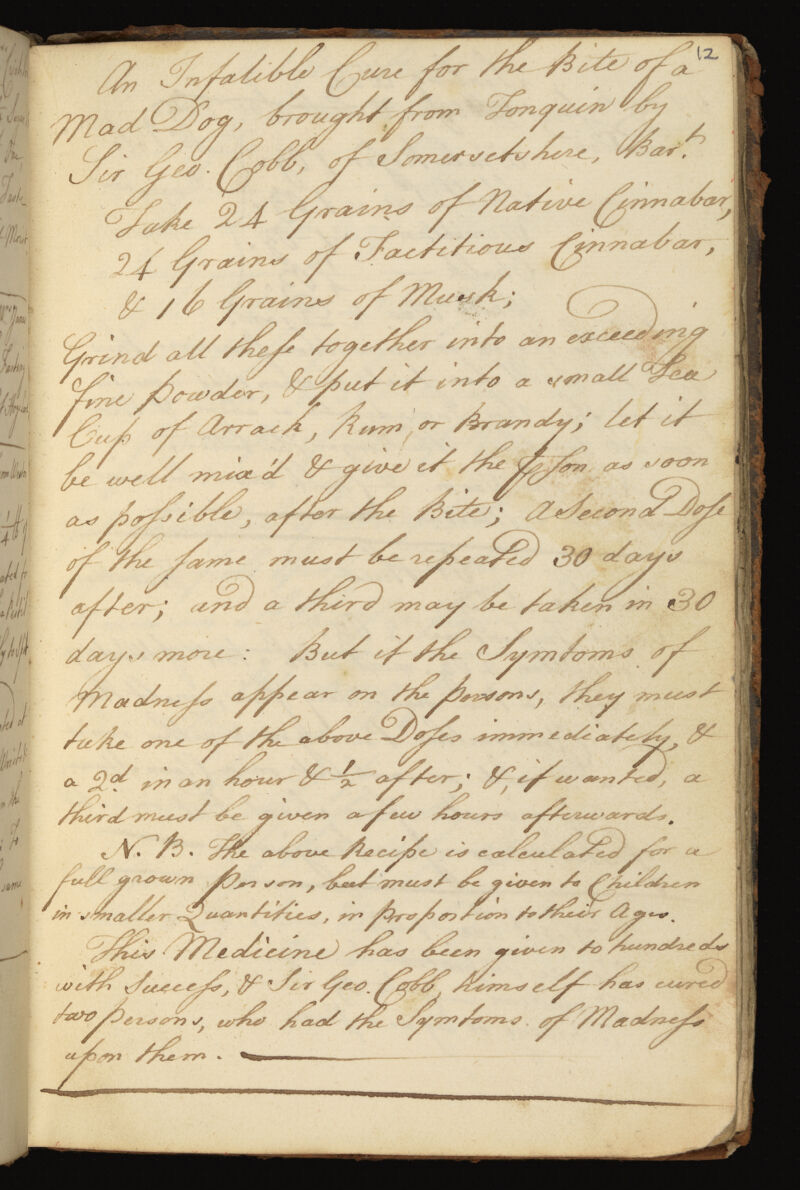 12
An Infalible Cure for the Bite of a
Mad Dog, brought from Tonquin by
Sir Geo. Cobb, of Somersetshire, Bar.t
Take 24 Grains of Native Cinnabar,
24 Grains of Factitious Cinnabar,
& 16 Grains of Musk;
Grind all these together into an exceeding
fine Powder, & put it into a small Tea
Cup of Arrack, Rum, or Brandy; let it
be well mix'd & give it the Pson as soon
as possible, after the Bite; A Second Dose
of the same must be repeated 30 days
after; and a third may be taken in 30
days more: But if the Symtoms of
Madness appear on the persons, they must
take one of the above Doses immediately, &
a 2.d in an hour & ½ after; &, if wanted, a
third must be given a few hours afterwards.
N. B. The above Recipe is calculated for a
full grown Person, but must be given to Children
in smaller Quantities, in proportion to their Ages.
This Medicine has been given to hundreds
with Success, & Sir Geo. Cobb, himself has cured
two persons, who had the Symtoms of Madness
upon them.